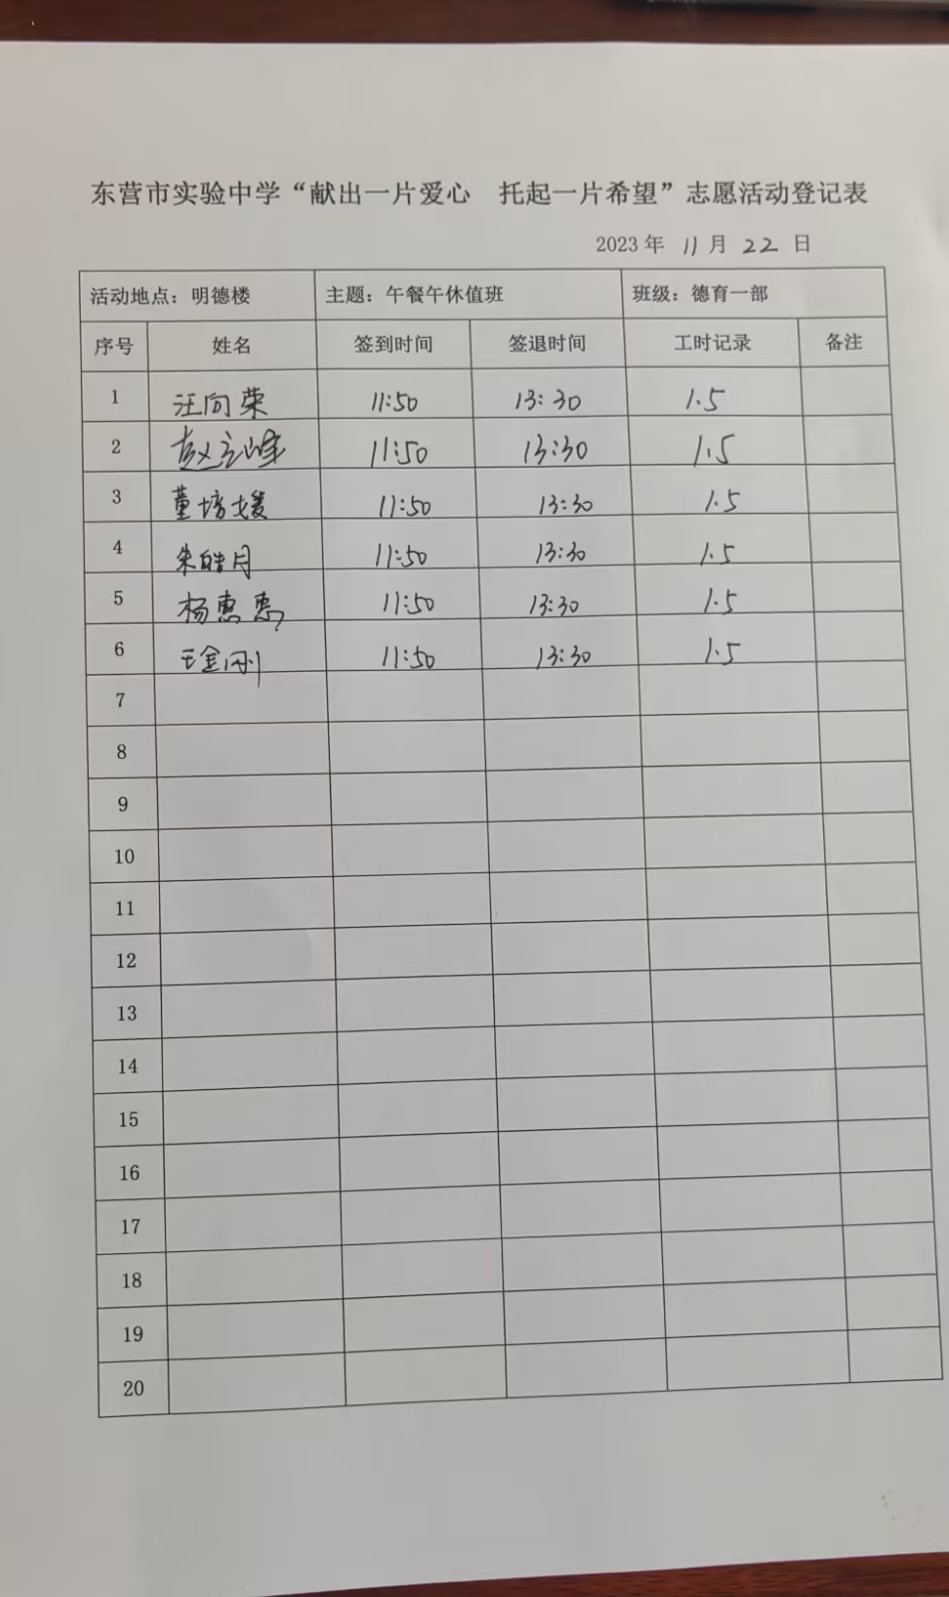 东营市实验中学“献出一片爱心 托起一片希望”志愿活动登记表
2023 年 11 月 22 日
活动地点：明德楼 主题：午餐午休值班 班级：德育一部
序号 姓名 签到时间 签退时间 工时记录 备注
1 汪向荣 11:50 13:30 1.5
2 赵立峰 11:50 13:30 1.5
3 董培媛 11:50 13:30 1.5
4 朱皓月 11:50 13:30 1.5
5 杨惠惠 11:50 13:30 1.5
6 王金刚 11:50 13:30 1.5
7
8
9
10
11
12
13
14
15
16
17
18
19
20